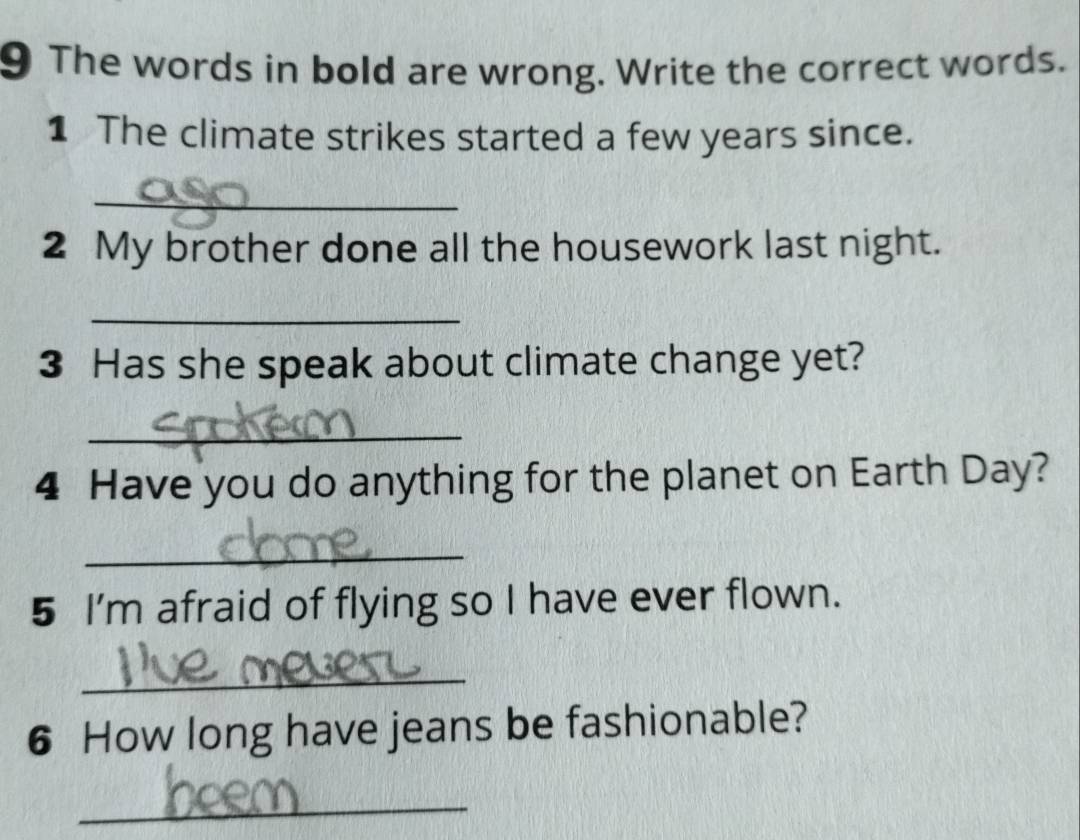 9 The words in bold are wrong. Write the correct words.
1 The climate strikes started a few years since.
ago
2 My brother done all the housework last night.
3 Has she speak about climate change yet?
spoken
4 Have you do anything for the planet on Earth Day?
done
5 I'm afraid of flying so I have ever flown.
I've never
6 How long have jeans be fashionable?
been